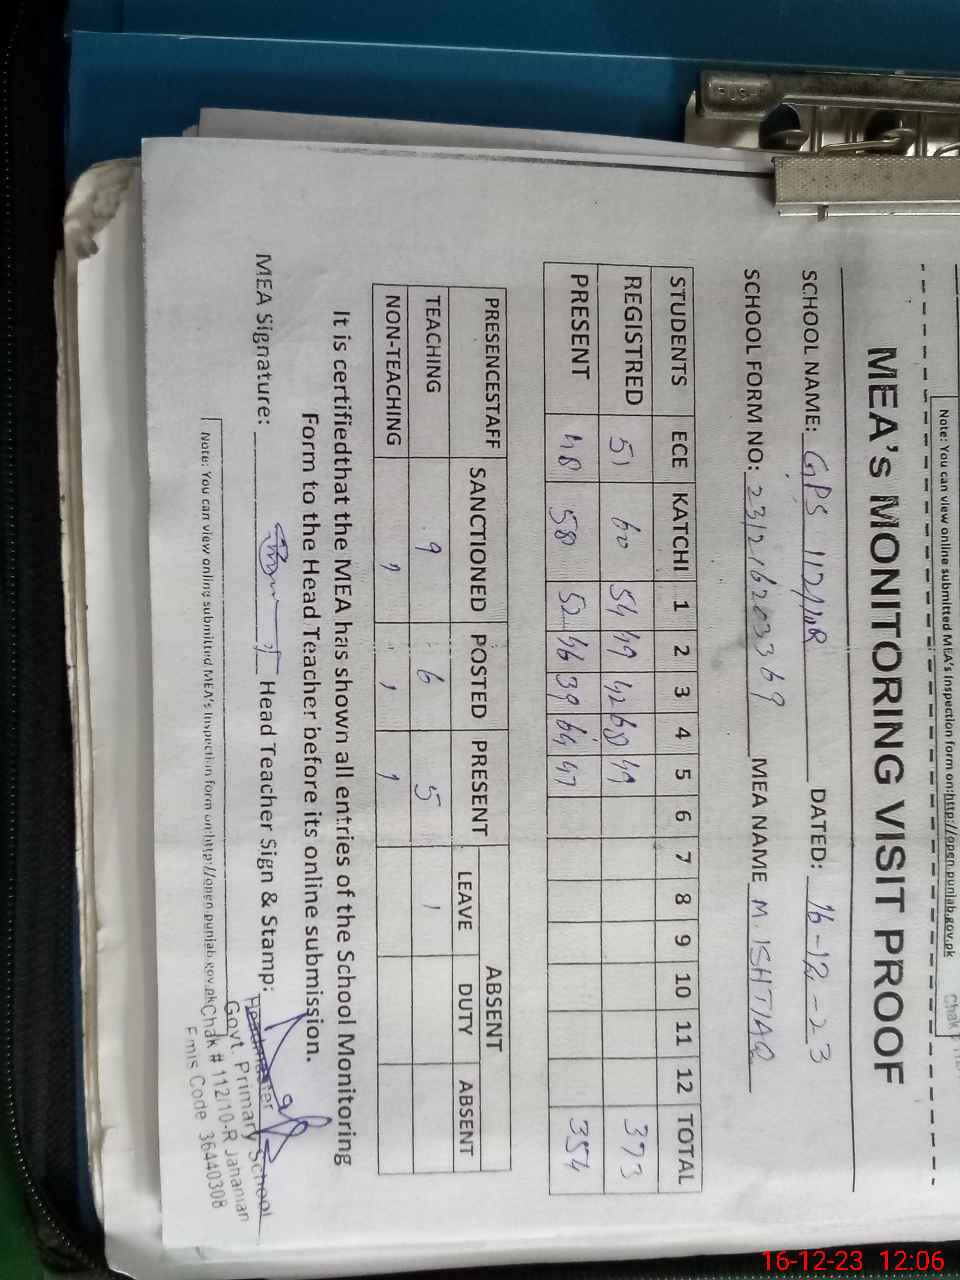 Note: You can view online submitted MEA's Inspection form on:http://open.punjab.gov.pk
Chak
MEA's MONITORING VISIT PROOF
SCHOOL NAME: GPS 112/10R DATED: 16-12-23
SCHOOL FORM NO: 231216203369 MEA NAME M. ISHTIAQ
STUDENTS ECE KATCHI 1 2 3 4 5 6 7 8 9 10 11 12 TOTAL
REGISTRED 51 60 54 49 42 68 49 373
PRESENT 48 58 52 46 39 64 47 354
PRESENCESTAFF SANCTIONED POSTED PRESENT ABSENT
LEAVE DUTY ABSENT
TEACHING 9 6 5 1
NON-TEACHING , , ,
It is certifiedthat the MEA has shown all entries of the School Monitoring
Form to the Head Teacher before its online submission.
MEA Signature: Head Teacher Sign & Stamp:
Headmaster
Govt. Primary School
Chak # 112/10-R Jahanian
Emis Code 36440308
Note: You can view online submitted MEA's Inspection form on:http://open.punjab.gov.pk
16-12-23 12:06